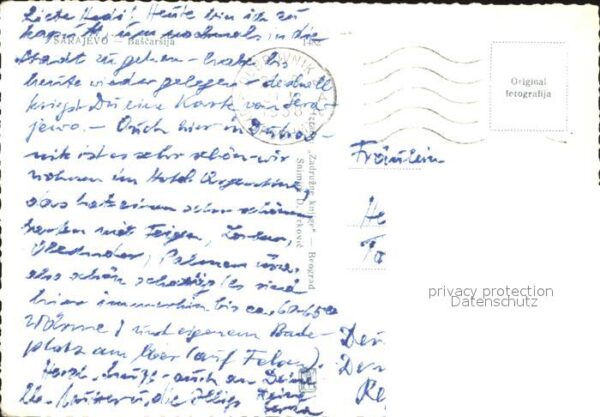 Liebe Hedi! Heute bin ich zu
kaputt, um nochmals in die
SARAJEVO — Baščaršija
Stadt zu gehen – habe bis
heute wieder gelegen – deshalb
kriegst Du eine Karte von Sara-
jewo. – Auch hier in Dubrov-
nik ist es sehr schön – wir
wohnen im Hotel Argentina,
das hat einen sehr schönen
Garten mit Feigen, Lorbeer,
Oleander, Palmen usw.
also schön schattig (es sind
hier immerhin bis ca.
Wärme) und eigenem Bade-
platz am Meer (auf Felsen).
Herzl. Grüße – auch an Deine
DUBROVNIK
Original
fotografija
Izdanje „Zadružne knjige" — Beograd
Snimio D.
Fräulein
He
privacy protection
Datenschutz